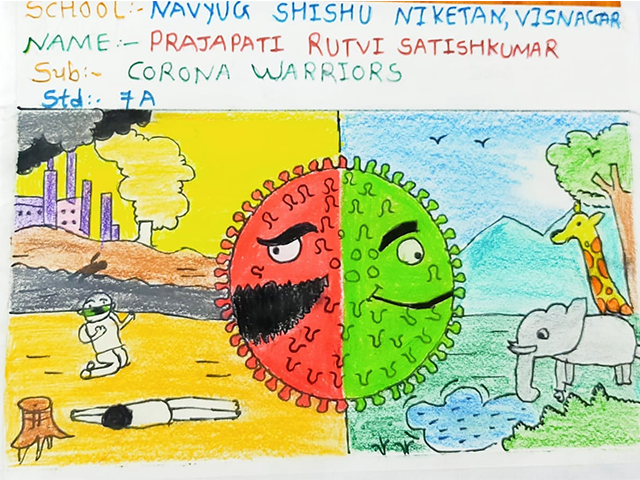 SCHOOL:- NAVYUG SHISHU NIKETAN, VISNAGAR
NAME:- PRAJAPATI RUTVI SATISHKUMAR
Sub:- CORONA WARRIORS
Std:- 7 A